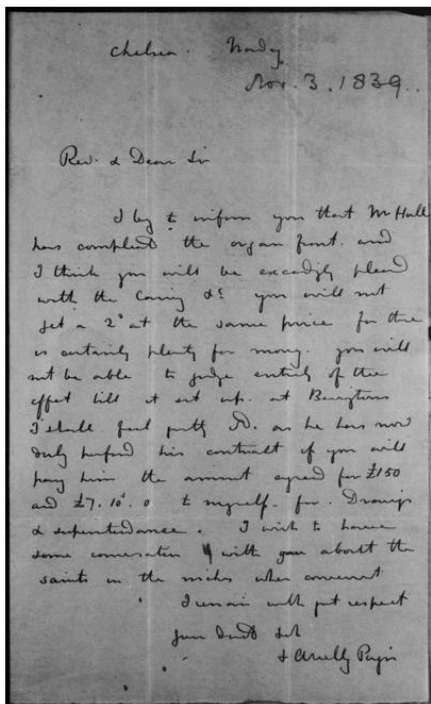 Chelsea. Monday
Nov. 3. 1839.
Rev. & Dear Sir
I beg to inform you that Mr Hull
has completed the organ front. and
I think you will be exceedingly pleased
with the Carving &c. you will not
get a 2d at the same price for there
is certainly plenty for money. you will
not be able to judge entirely of the
effect till it set up. at
I shall feel as he has now
duly his contract if you will
pay him the amount agreed for £150
and £7.10s.0 to myself. for. Drawings
& superintendance. I wish to have
some conversation with you about the
saints in the niches when convenient
I remain with respect
your
Pugin